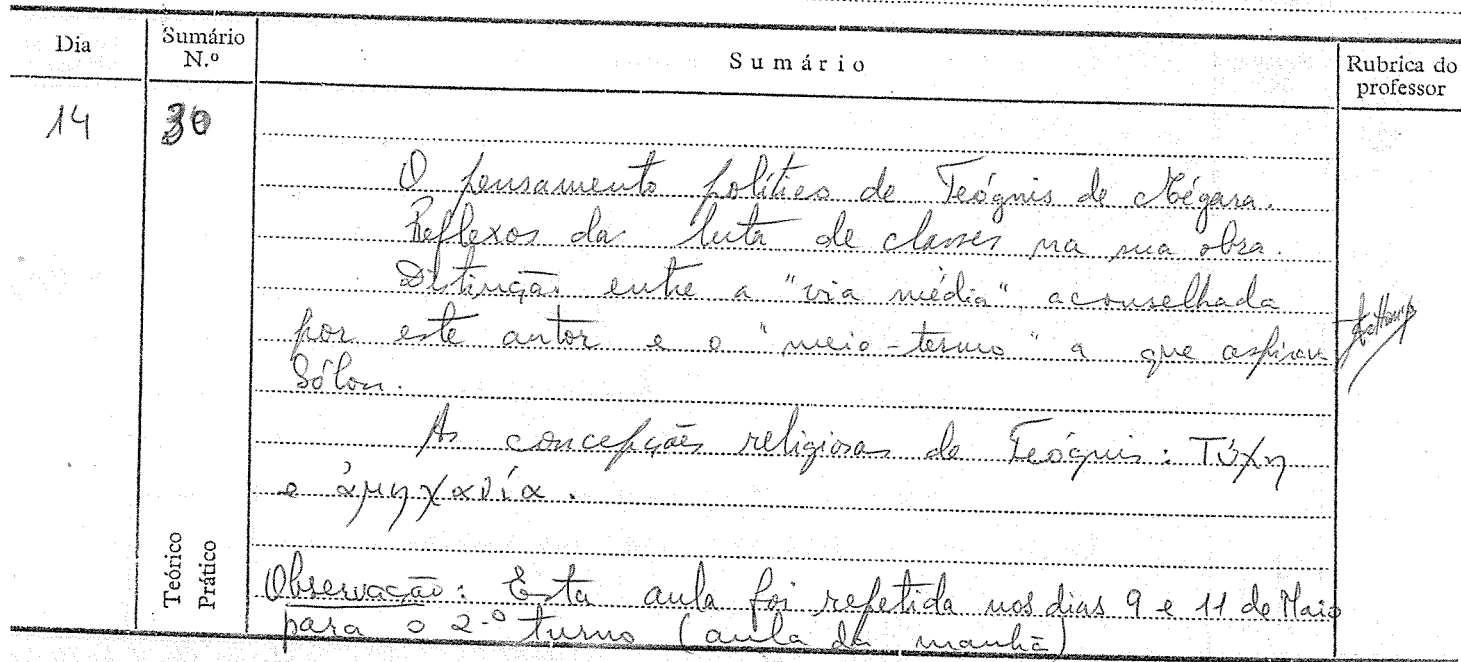 Dia Sumário N.º Sumário Rubrica do professor
14 30
O pensamento político de Teógnis de Mégara.
Reflexos da luta de classes na sua obra.
Distinção entre a "via média" aconselhada
por este autor e o "meio-termo" a que aspirou
Sólon.
As concepções religiosas de Teógnis: Τύχη
e ἀμηχανία.
Teórico
Prático
Observação: Esta aula foi repetida nos dias 9 e 11 de Maio
para o 2.º turno (aula da manhã)